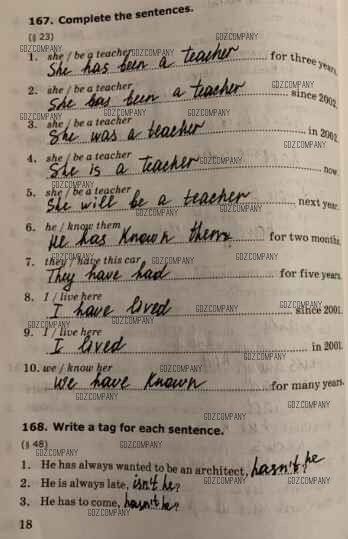 167. Complete the sentences.
(§ 23)
GDZ.COMPANY
1. she / be a teacher
She has been a teacher for three years.
2. she / be a teacher
She has been a teacher since 2002.
3. she / be a teacher
She was a teacher in 2002.
4. she / be a teacher
She is a teacher now.
5. she / be a teacher
She will be a teacher next year.
6. he / know them
He has known them. for two months.
7. they / have this car
They have had for five years.
8. I / live here
I have lived since 2001.
9. I / live here
I lived in 2001.
10. we / know her
We have known for many years.
168. Write a tag for each sentence.
(§ 48)
1. He has always wanted to be an architect, hasn't he?
2. He is always late, isn't he?
3. He has to come, hasn't he?
18